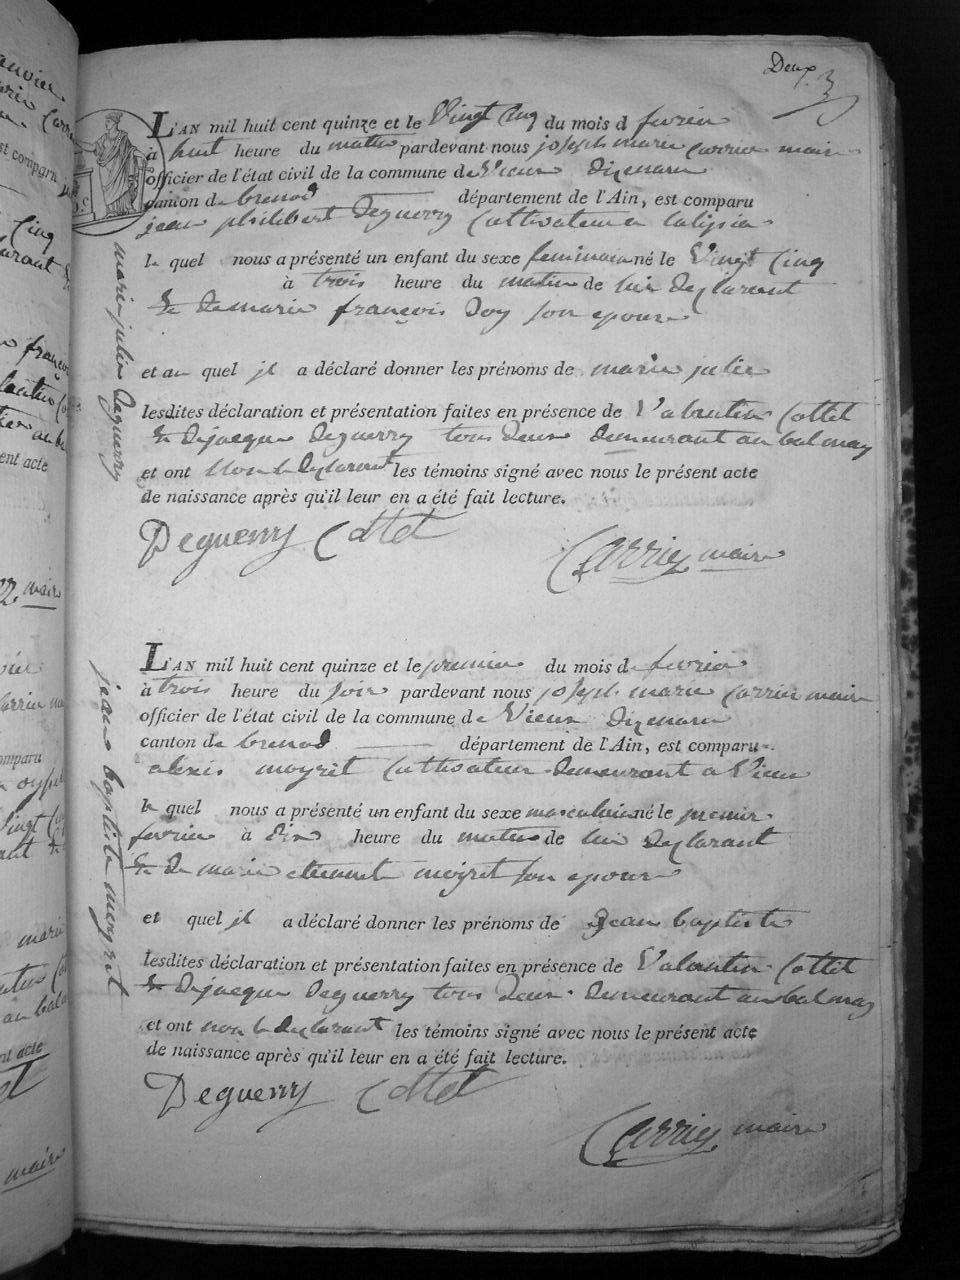 Deux
3
L'AN mil huit cent quinze et le Vingt Cinq du mois d fevrier
à huit heure du matin pardevant nous joseph marie carrier maire
officier de l'état civil de la commune de Vieux Dizenave
canton de brenod département de l'Ain, est comparu
jean philibert Deguerry Cultivateur a
le quel nous a présenté un enfant du sexe feminin né le Vingt Cinq
à trois heure du matin de lui declarant
& de marie françois Doy son epouse
et au quel il a déclaré donner les prénoms de marie julie
lesdites déclaration et présentation faites en présence de Valentin Cottet
& de jacque Deguerry tous deux demeurant au balmay
et ont non le declarant les témoins signé avec nous le présent acte
de naissance après qu'il leur en a été fait lecture.
Deguerry Cottet
Carrier maire
marie julie Deguerry
L'AN mil huit cent quinze et le premier du mois de fevrier
à trois heure du soir pardevant nous joseph marie carrier maire
officier de l'état civil de la commune de Vieux Dizenave
canton de brenod département de l'Ain, est comparu
alexis moyret Cultivateur demeurant a Vieux
le quel nous a présenté un enfant du sexe masculin né le premier
fevrier à dix heure du matin de lui declarant
& de marie moyret son epouse
et quel il a déclaré donner les prénoms de jean baptiste
lesdites déclaration et présentation faites en présence de Valentin Cottet
& de jacque Deguerry tous deux demeurant au balmay
et ont non le declarant les témoins signé avec nous le présent acte
de naissance après qu'il leur en a été fait lecture.
Deguerry Cottet
Carrier maire
jean baptiste moyret